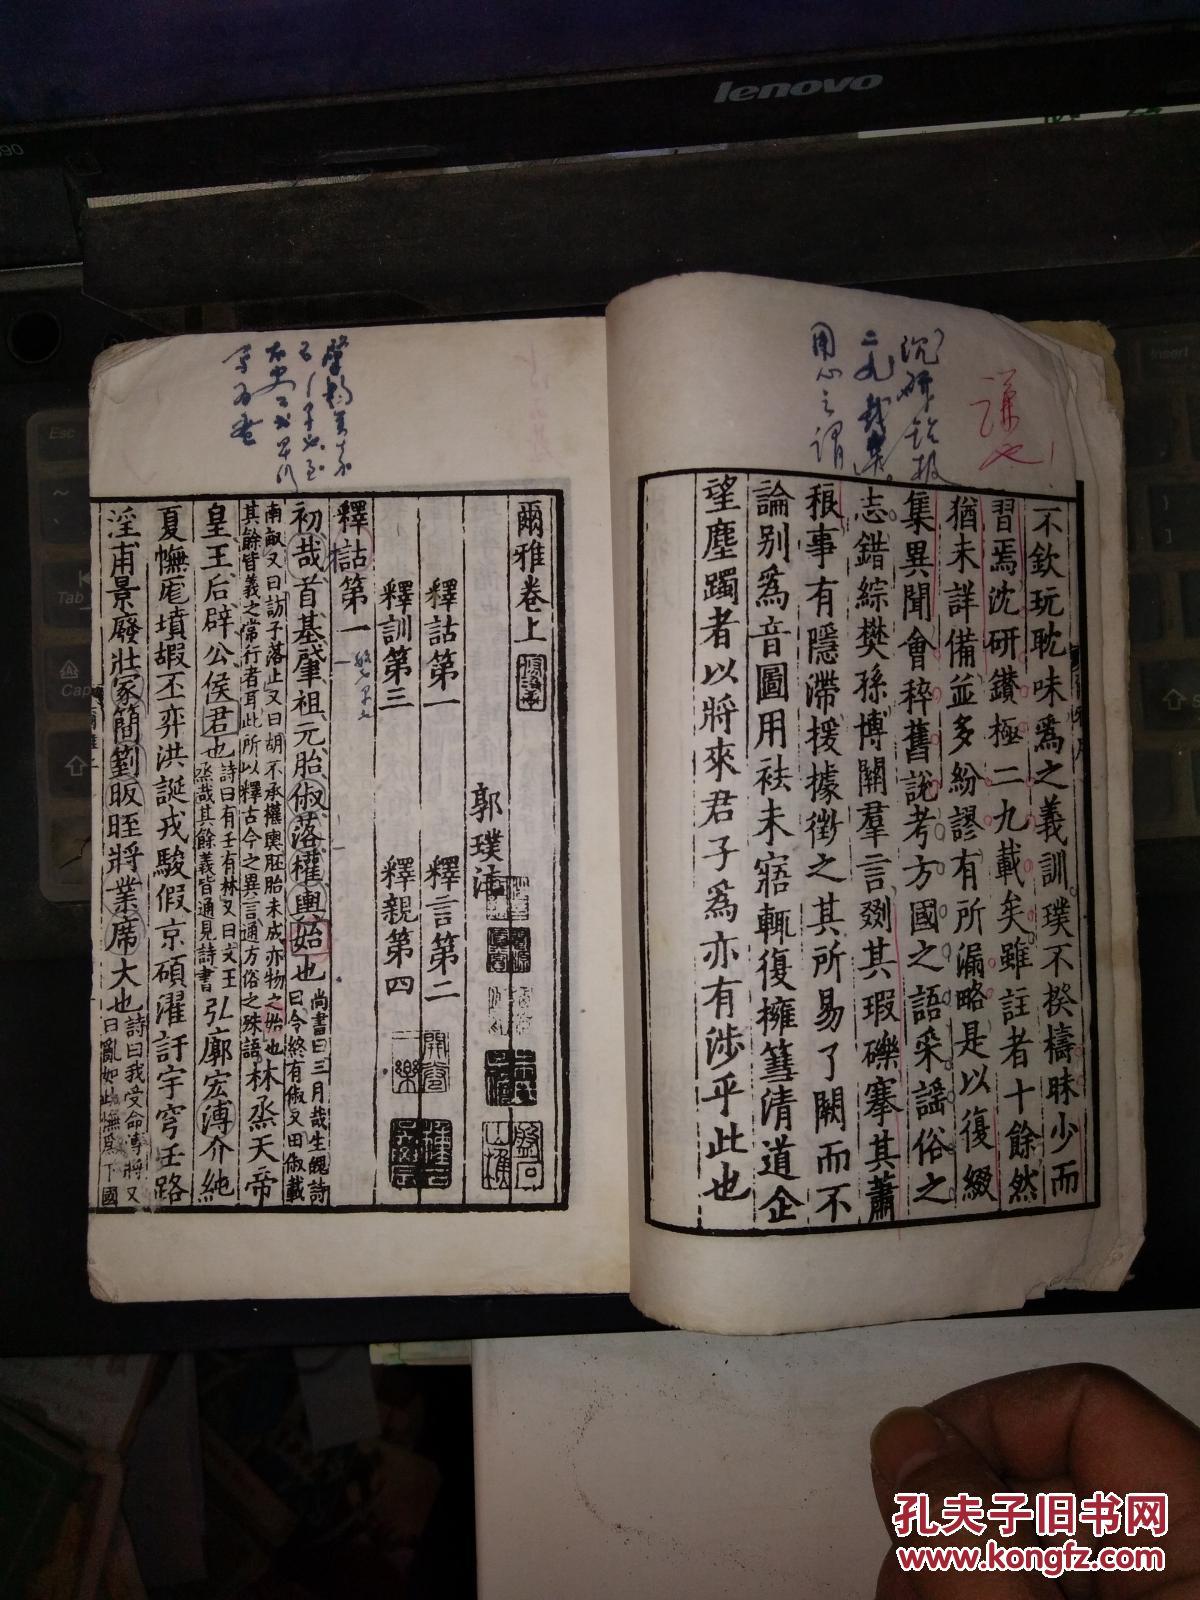 lenovo
不欽玩耽味爲之義訓璞不揆檮昧少而
習焉沈研鑽極二九載矣雖註者十餘然
猶未詳備並多紛謬有所漏略是以復綴
集異聞會稡舊說考方國之語采謠俗之
志錯綜樊孫博關羣言剟其瑕礫搴其蕭
稂事有隱滯援據徵之其所易了闕而不
論別爲音圖用袪未寤輒復擁篲清道企
望塵躅者以將來君子爲亦有涉乎此也
謙也
沉研鑽极
二九載矣
用心之謂
爾雅卷上
郭璞注
釋詁第一 釋言第二
釋訓第三 釋親第四
釋詁第一
初哉首基肇祖元胎俶落權輿始也尚書曰三月哉生魄詩
曰令終有俶又曰俶載
南畝又曰訪予落止又曰胡不承權輿胚胎未成亦物之始也
其餘皆義之常行者耳此所以釋古今之異言通方俗之殊語林烝天帝
皇王后辟公侯君也詩曰有壬有林又曰文王
烝哉其餘義皆通見詩書弘廓宏溥介純
夏幠厖墳嘏丕弈洪誕戎駿假京碩濯訏宇穹壬路
淫甫景廢壯冢簡箌昄晊將業席大也詩曰我受命溥將又
曰亂如此幠爲下國
Insert
Esc
Tab
孔夫子旧书网
www.kongfz.com